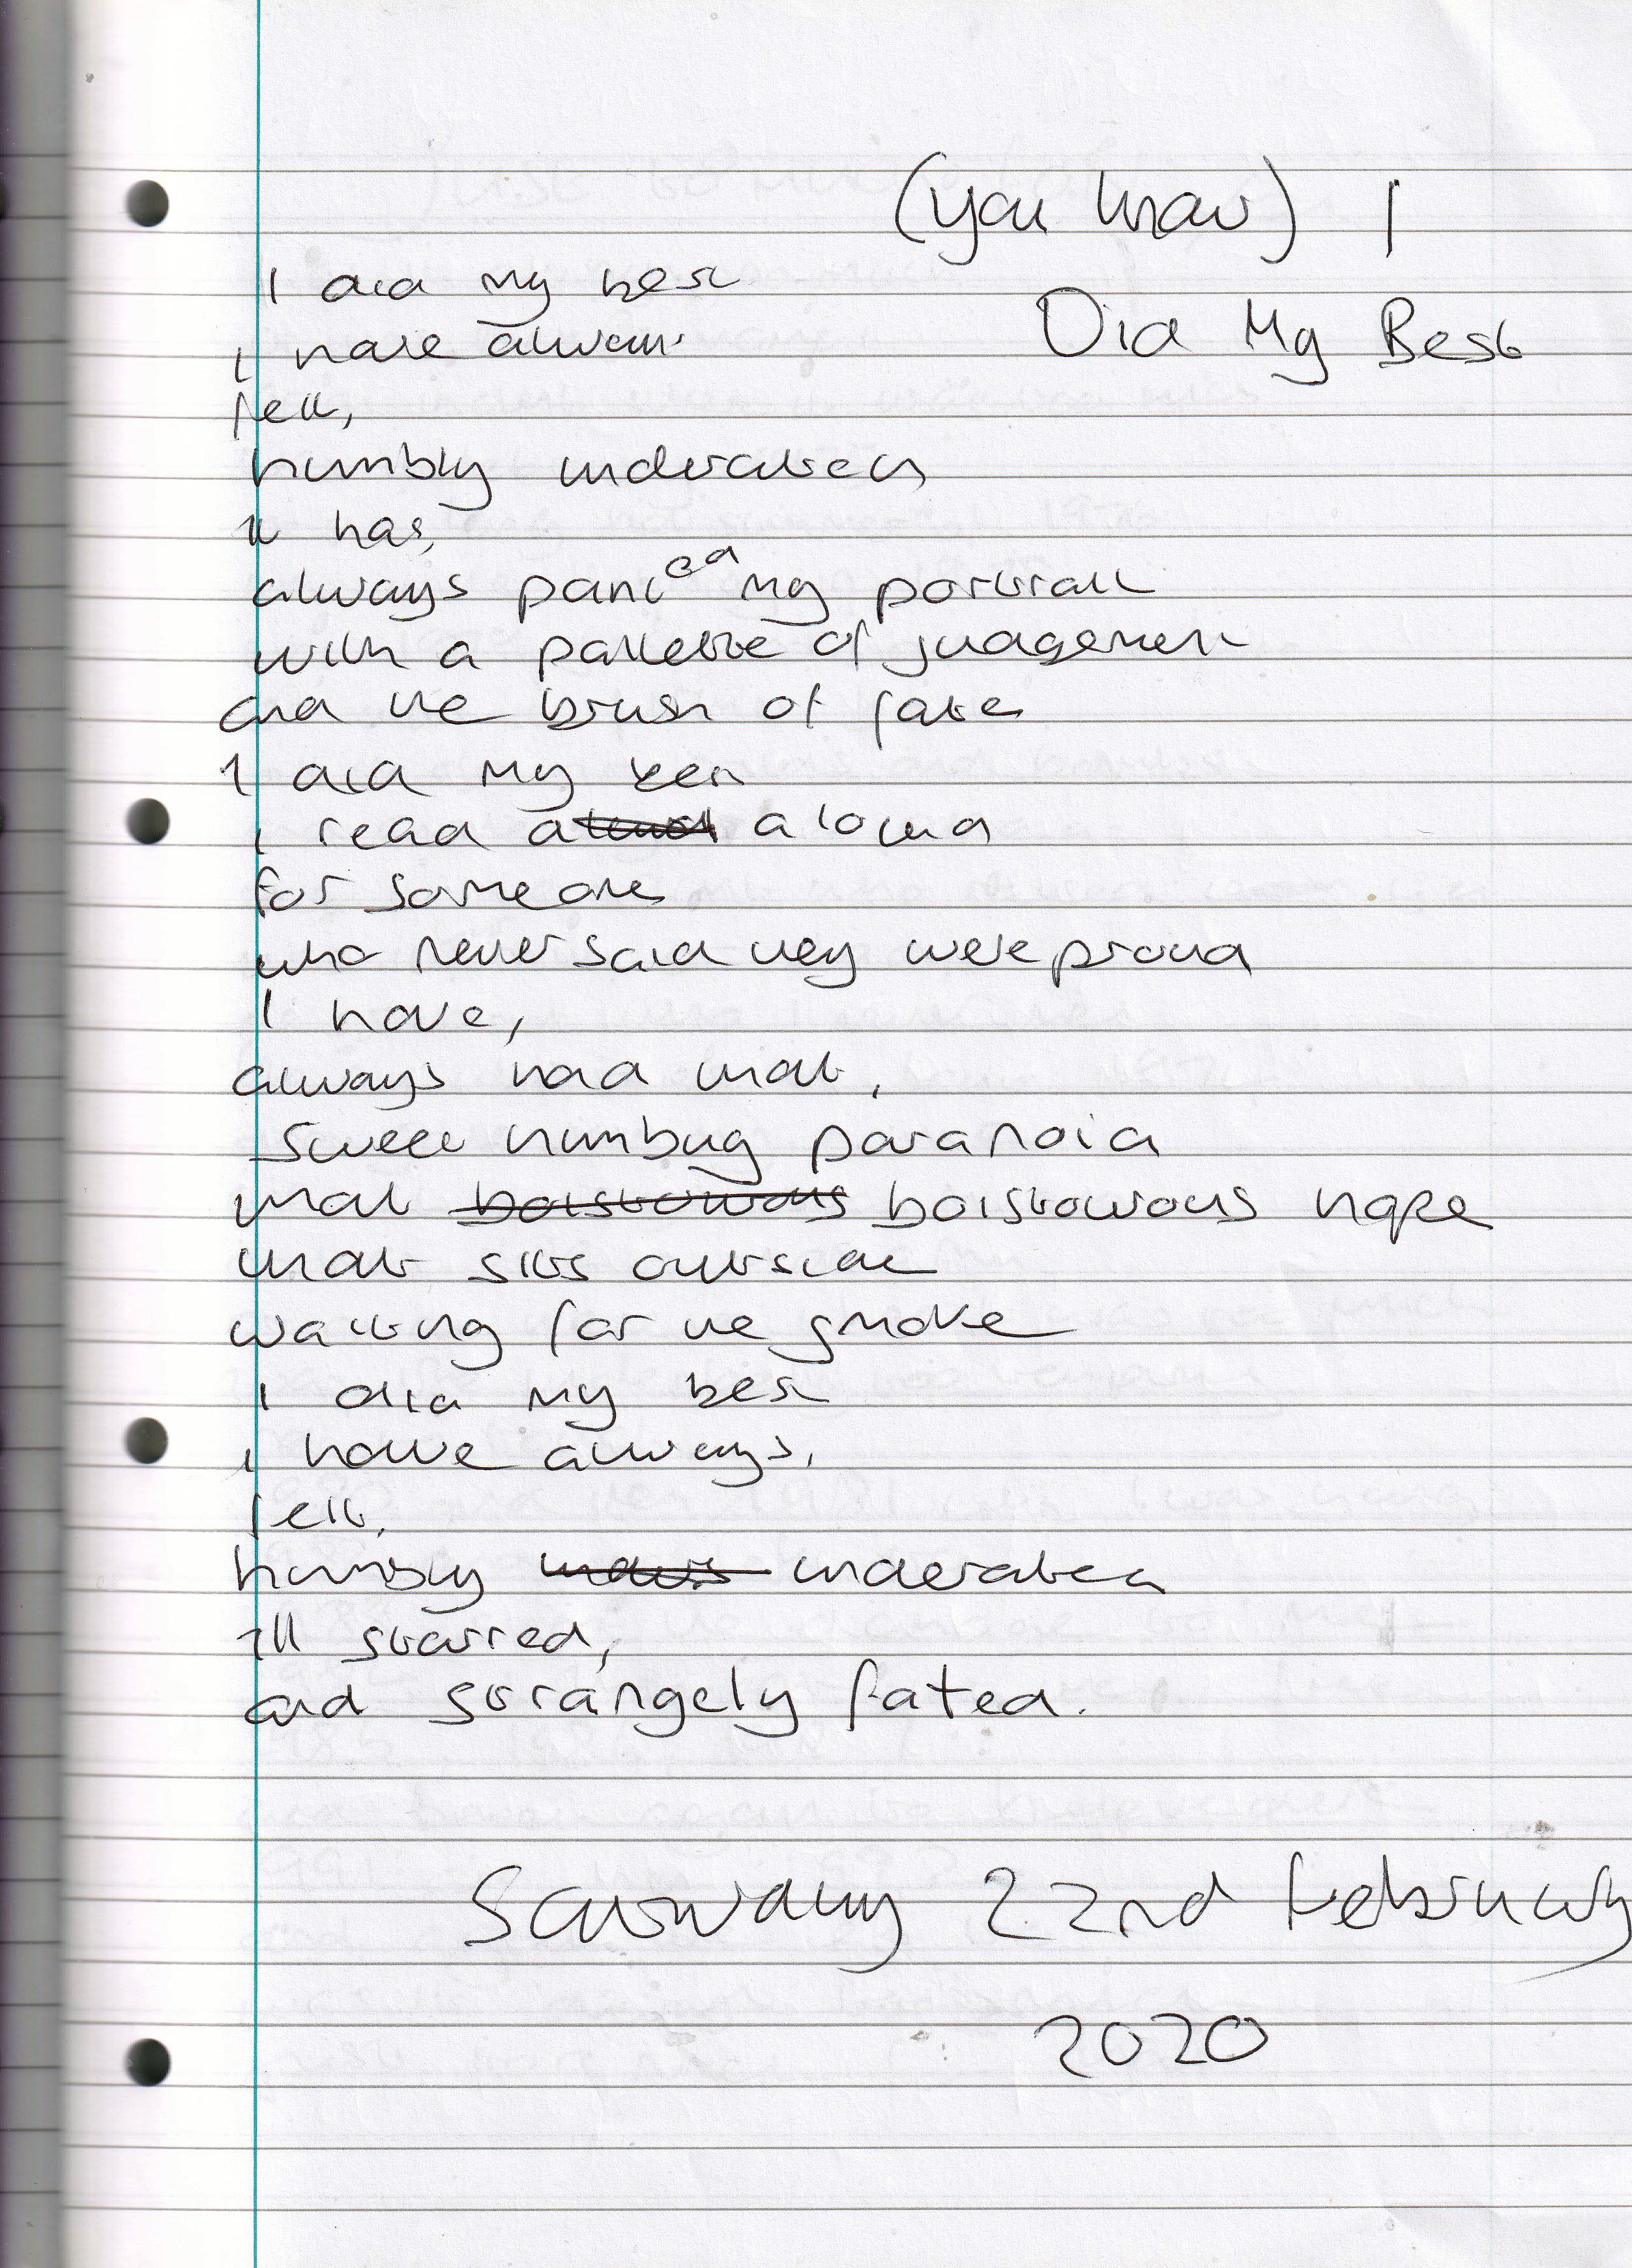 (you know) I
Did My Best
I did my best
I have always
felt,
humbly underrated
it has,
always painted my portrait
with a pallette of judgement
and the brush of fate
I did my best
I read aloud
for someone
who never said they were proud
I have,
always had that,
sweet humbug paranoia
that boistowous boistowous hope
that sits outside
waiting for the smoke
I did my best
I have always,
felt,
humbly underrated
ill starred,
and strangely fated.
Saturday 22nd February
2020